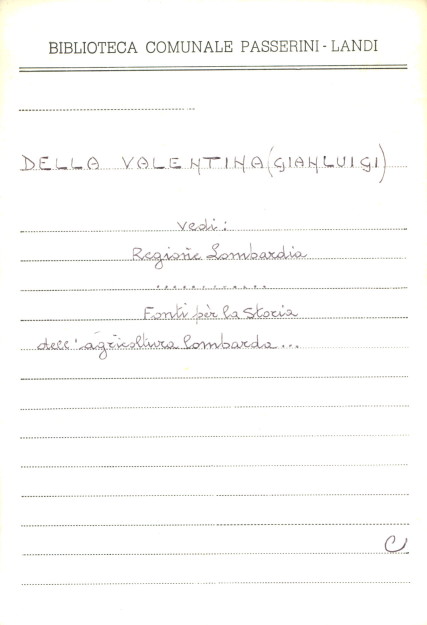 BIBLIOTECA COMUNALE PASSERINI - LANDI
DELLA VALENTINA (GIANLUIGI)
Vedi:
Regione Lombardia
............
Fonti per la Storia
dell'agricoltura lombarda...
C